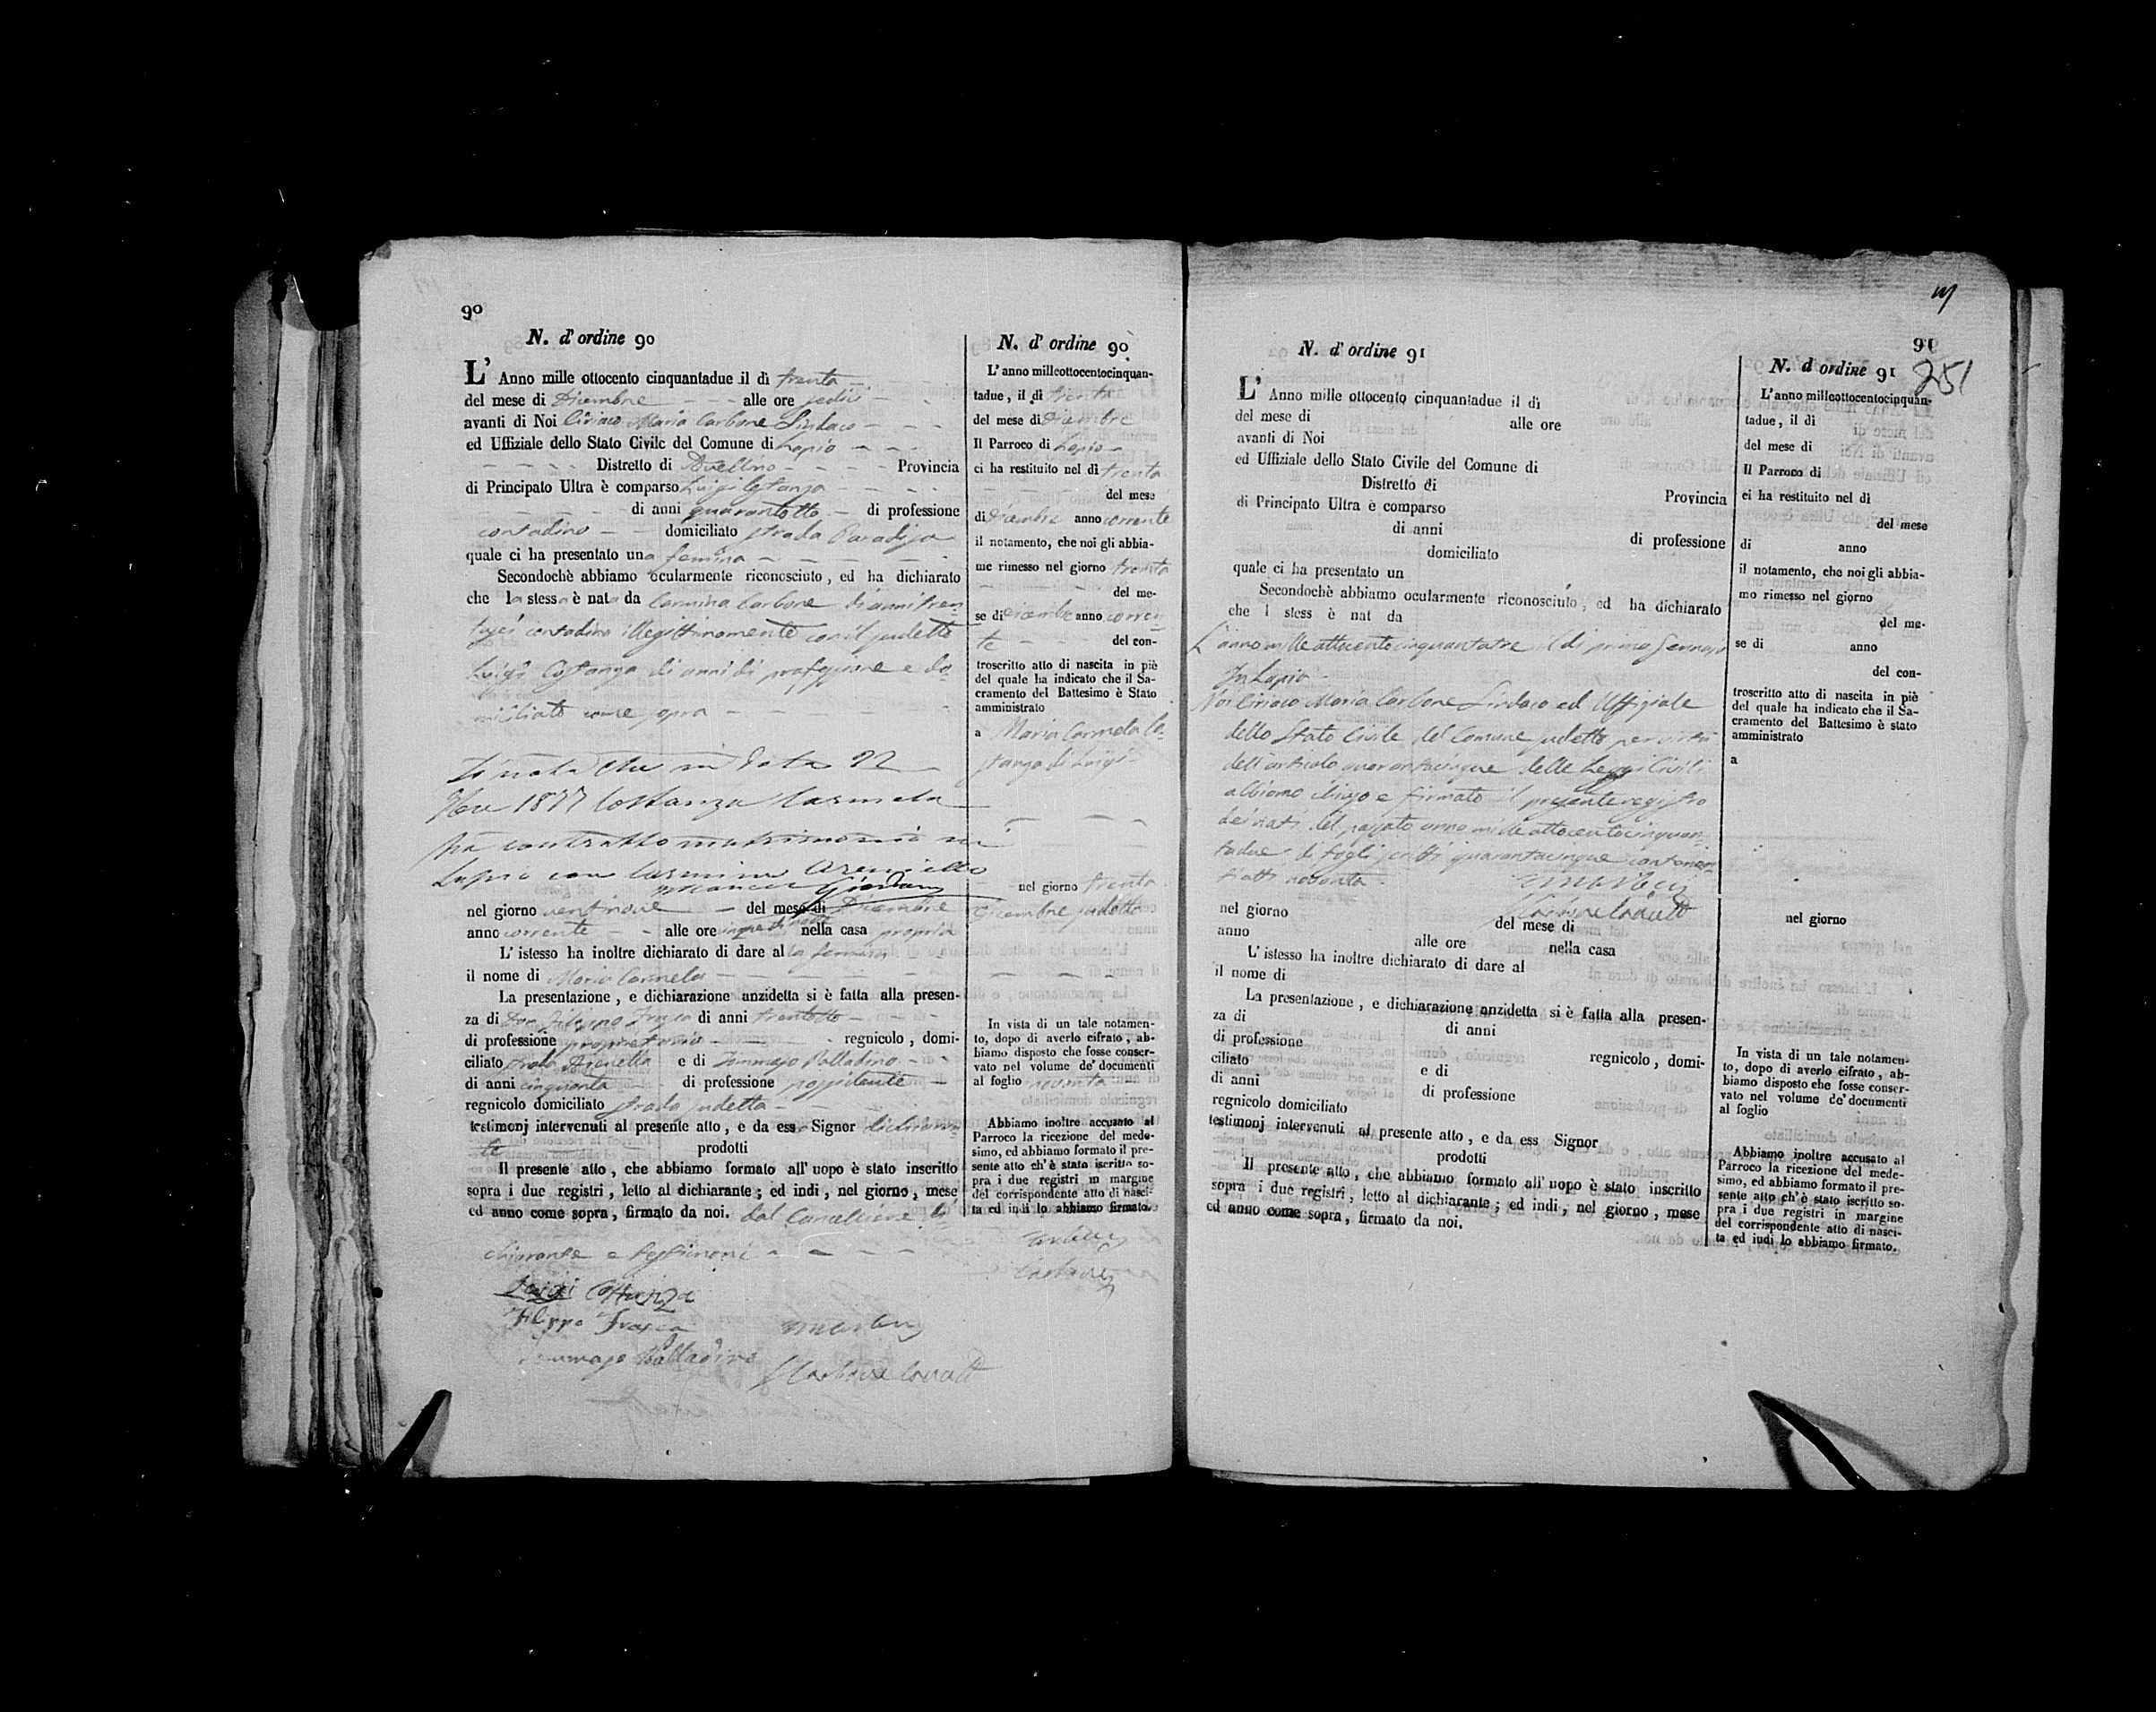 90
N. d' ordine 90
L' Anno mille ottocento cinquantadue il dì trenta
del mese di Dicembre alle ore sedici
avanti di Noi Ciriaco Maria Carbone Sindaco
ed Uffiziale dello Stato Civile del Comune di Lapio
Distretto di Avellino Provincia
di Principato Ultra è comparso Luigi Costanza
di anni quarantotto di professione
contadino domiciliato strada Paradiso
quale ci ha presentato una femina
Secondochè abbiamo ocularmente riconosciuto, ed ha dichiarato
che la stessa è nata da Carmina Carbone di anni tren-
tasei contadina illegittimamente con il sudetto
Luigi Costanza di anni di professione e do-
miciliato come sopra
Si nota che in data 22
1877 Costanza Carmela
ha contratto matrimonio in
Lapio con Carmine
nel giorno ventinove del mese di Dicembre
anno corrente alle ore nella casa propria
L' istesso ha inoltre dichiarato di dare al la femina
il nome di Maria Carmela
La presentazione, e dichiarazione anzidetta si è fatta alla presen-
za di Don Filippo di anni trentotto
di professione proprietario regnicolo, domi-
ciliato strada e di Tommaso Palladino
di anni cinquanta di professione possidente
regnicolo domiciliato strada sudetta
testimonj intervenuti al presente atto, e da esso Signor dichiaran-
te prodotti
Il presente atto, che abbiamo formato all' uopo è stato inscritto
sopra i due registri, letto al dichiarante; ed indi, nel giorno, mese
ed anno come sopra, firmato da noi. dal Cancelliere di-
chiarante e testimoni
Luigi Costanza
Filippo
Tommaso Palladino
N. d' ordine 90
L' anno milleottocentocinquan-
tadue, il dì trenta
del mese di Dicembre
Il Parroco di Lapio
ci ha restituito nel dì trenta
del mese
di Dicembre anno corrente
il notamento, che noi gli abbia-
mo rimesso nel giorno trenta
del me-
se di Dicembre anno corren-
te del con-
troscritto atto di nascita in piè
del quale ha indicato che il Sa-
cramento del Battesimo è Stato
amministrato
a Maria Carmela Co-
stanza di Luigi
nel giorno trenta
Dicembre sudetto
In vista di un tale notamen-
to, dopo di averlo cifrato, ab-
biamo disposto che fosse conser-
vato nel volume de' documenti
al foglio novanta
Abbiamo inoltre accusato al
Parroco la ricezione del mede-
simo, ed abbiamo formato il pre-
sente atto ch' è stato iscritto so-
pra i due registri in margine
del corrispondente atto di nasci-
ta ed indi lo abbiamo firmato.
91
251
N. d' ordine 91
L' Anno mille ottocento cinquantadue il dì
del mese di alle ore
avanti di Noi
ed Uffiziale dello Stato Civile del Comune di
Distretto di Provincia
di Principato Ultra è comparso
di anni di professione
domiciliato
quale ci ha presentato un
Secondochè abbiamo ocularmente riconosciuto, ed ha dichiarato
che l stess è nat da
L'anno mille ottocentocinquantatre il dì primo Gennajo
In Lapio
Noi Ciriaco Maria Carbone Sindaco ed Uffiziale
dello Stato Civile del Comune sudetto
dell'articolo quarantacinque delle Leggi Civili
abbiamo chiuso e firmato il presente registro
dei nati del passato anno mille ottocentocinquan-
tadue di fogli scritti quarantacinque
atti novanta
nel giorno del mese di
anno alle ore nella casa
L' istesso ha inoltre dichiarato di dare al
il nome di
La presentazione, e dichiarazione anzidetta si è fatta alla presen-
za di di anni
di professione regnicolo, domi-
ciliato e di
di anni di professione
regnicolo domiciliato
testimonj intervenuti al presente atto, e da ess Signor
prodotti
Il presente atto, che abbiamo formato all' uopo è stato inscritto
sopra i due registri, letto al dichiarante; ed indi, nel giorno, mese
ed anno come sopra, firmato da noi.
N. d' ordine 91
L' anno milleottocentocinquan-
tadue, il dì
del mese di
Il Parroco di
ci ha restituito nel dì
del mese
di anno
il notamento, che noi gli abbia-
mo rimesso nel giorno
del me-
se di anno
del con-
troscritto atto di nascita in piè
del quale ha indicato che il Sa-
cramento del Battesimo è stato
amministrato
a
nel giorno
In vista di un tale notamen-
to, dopo di averlo cifrato, ab-
biamo disposto che fosse conser-
vato nel volume de' documenti
al foglio
Abbiamo inoltre accusato al
Parroco la ricezione del mede-
simo, ed abbiamo formato il pre-
sente atto ch' è stato iscritto so-
pra i due registri in margine
del corrispondente atto di nasci-
ta ed indi lo abbiamo firmato.